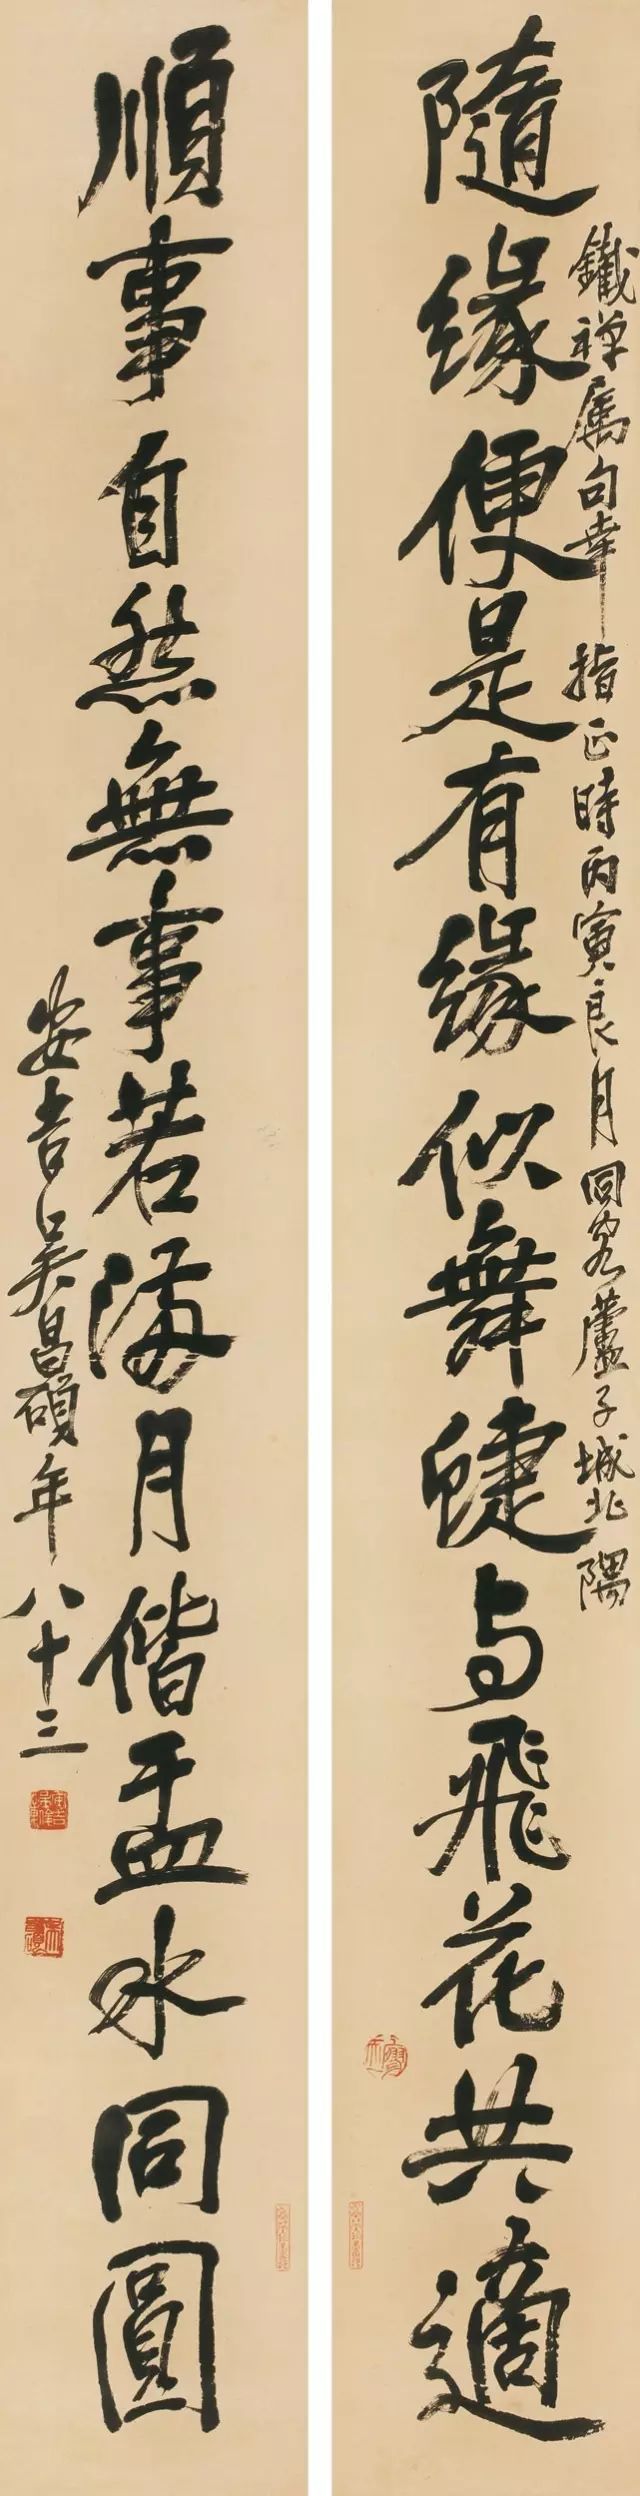 隨緣便是有緣似舞蜨与飛花共適
鐵禪属句幸
指正時丙寅良月同客蘆子城北隅
順事自然無事若滿月偕盂水同圓
安吉吳昌碩年八十三